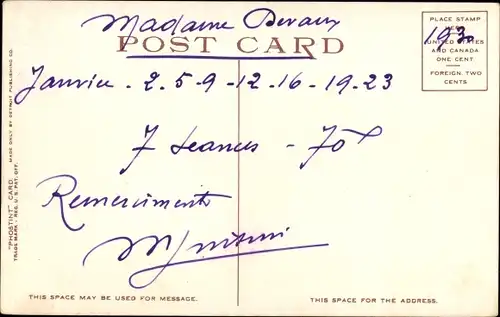 Madame Devaux
POST CARD
PLACE STAMP
HERE
UNITED STATES
AND CANADA
ONE CENT
FOREIGN, TWO
CENTS
193
Janvier . 2 . 5 - 9 - 12 . 16 . 19 . 23
7 seances - 70
Remerciments
"PHOSTINT" CARD. MADE ONLY BY DETROIT PUBLISHING CO.
TRADE MARK. REG. U.S. PAT. OFF.
THIS SPACE MAY BE USED FOR MESSAGE.
THIS SPACE FOR THE ADDRESS.